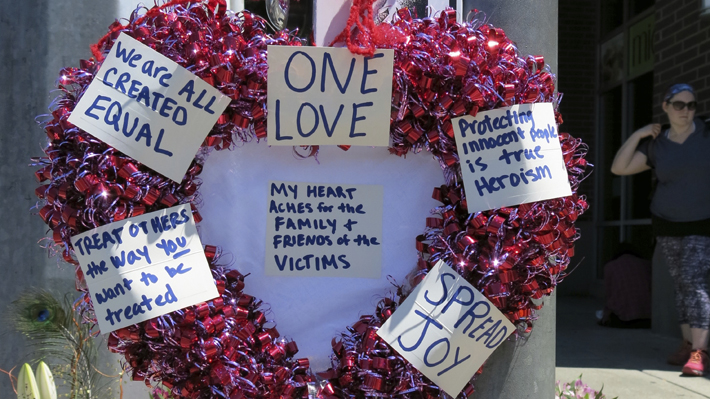 We are all
CREATED
EQUAL
ONE
LOVE
Protecting
innocent people
is true
Heroism
MY HEART
ACHES for the
FAMILY +
FRIENDS of the
VICTIMS
TREAT OTHERS
the way you
want to be
treated
SPREAD
JOY